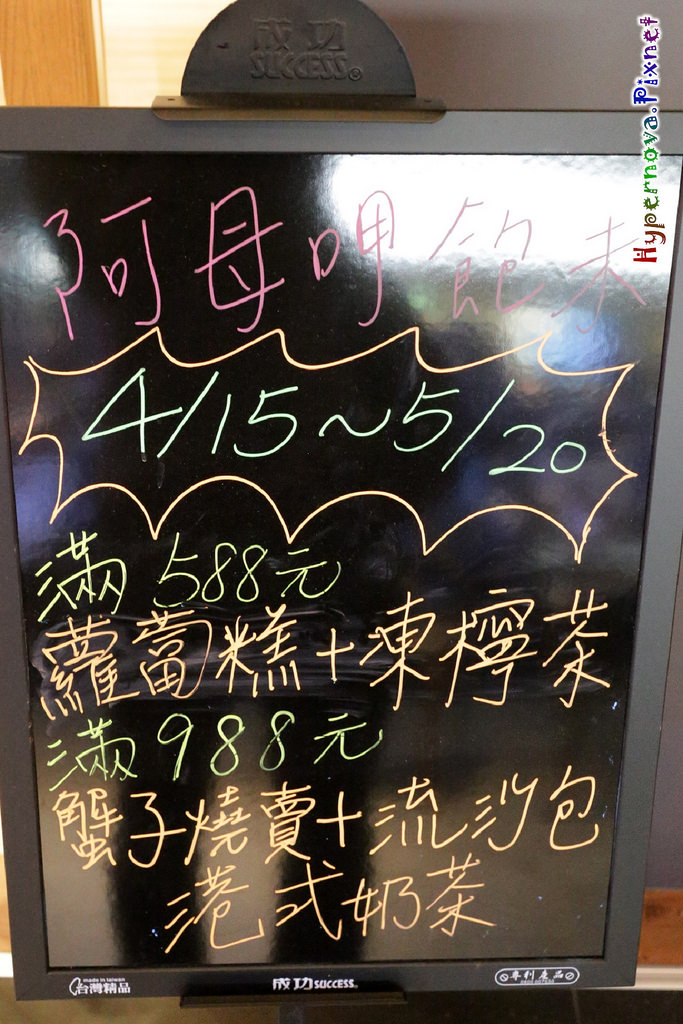 成功
SUCCESS®
Hypernova.Pixnet
阿母呷飽未
4/15~5/20
滿588元
蘿蔔糕+凍檸茶
滿988元
蟹子燒賣+流沙包
港式奶茶
made in taiwan
台灣精品
成功SUCCESS®
專利產品